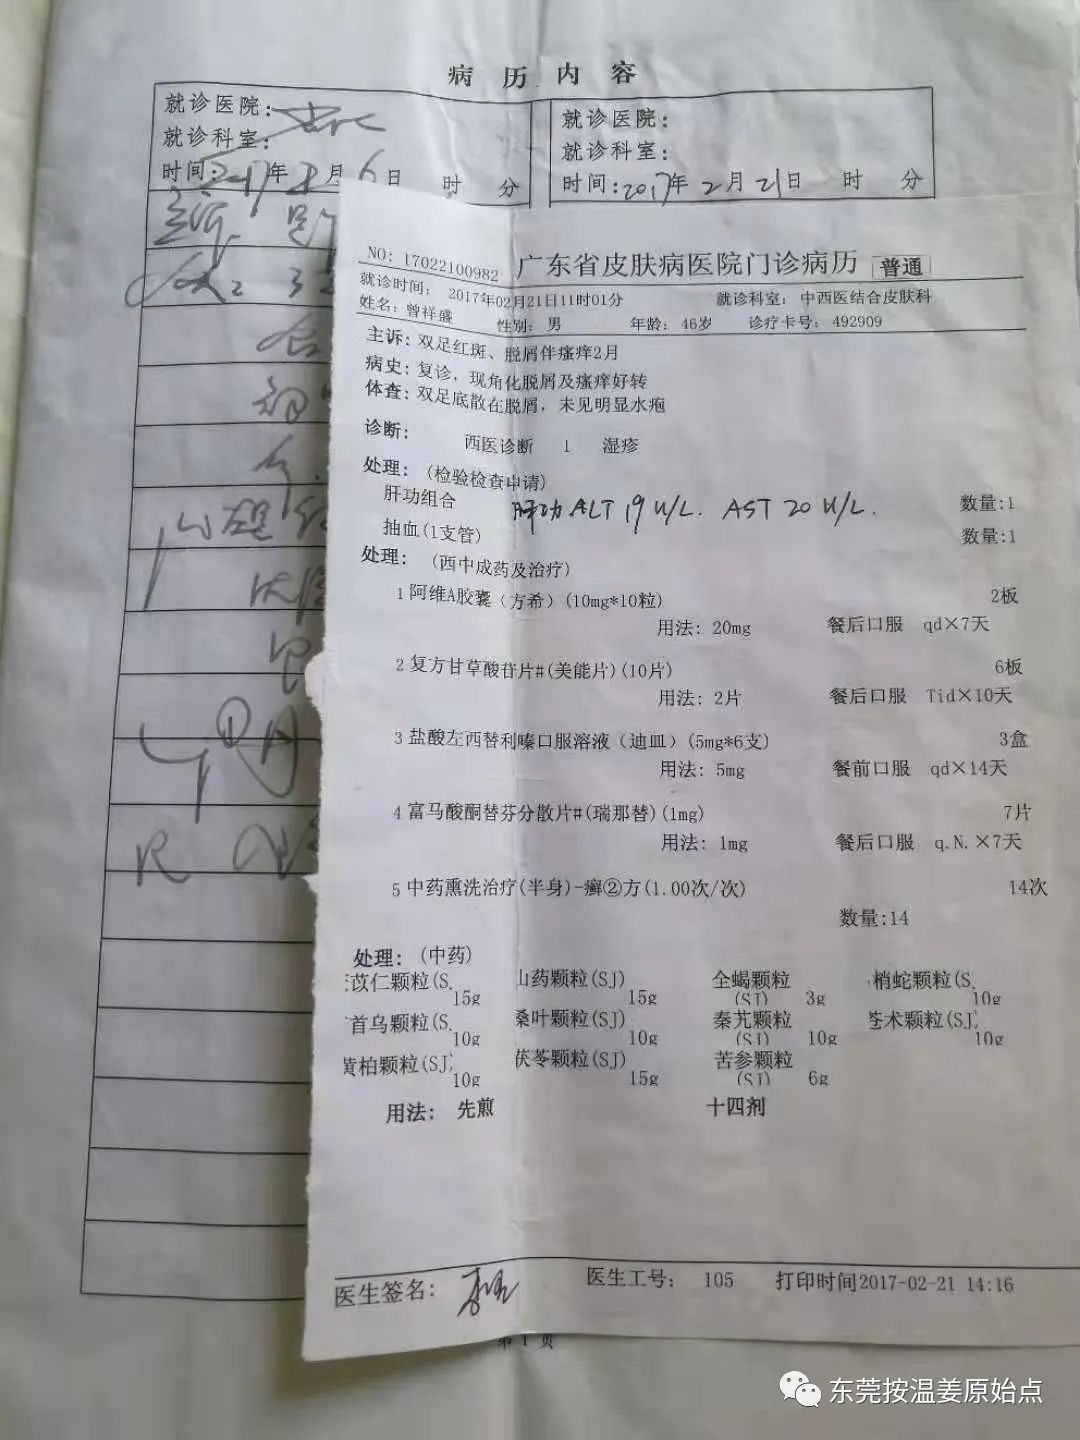 病 历 内 容
就诊医院：
就诊科室：
时间： 年 月6日 时 分
就诊医院：
就诊科室：
时间：2017年2月21日 时 分
主诉
NO: 17022100982 广东省皮肤病医院门诊病历 普通
就诊时间： 2017年02月21日11时01分 就诊科室： 中西医结合皮肤科
姓名：曾祥盛 性别：男 年龄：46岁 诊疗卡号：492909
主诉：双足红斑、脱屑伴瘙痒2月
病史：复诊，现角化脱屑及瘙痒好转
体查：双足底散在脱屑，未见明显水疱
诊断： 西医诊断 1 湿疹
处理：(检验检查申请)
肝功组合 肝功 ALT 19 U/L. AST 20 U/L. 数量:1
抽血(1支管) 数量:1
处理：(西中成药及治疗)
1 阿维A胶囊（方希）(10mg*10粒) 2板
用法: 20mg 餐后口服 qd×7天
2 复方甘草酸苷片#(美能片)(10片) 6板
用法: 2片 餐后口服 Tid×10天
3 盐酸左西替利嗪口服溶液（迪皿）(5mg*6支) 3盒
用法: 5mg 餐前口服 qd×14天
4 富马酸酮替芬分散片#(瑞那替)(1mg) 7片
用法: 1mg 餐后口服 q.N.×7天
5 中药熏洗治疗(半身)-癣②方(1.00次/次) 14次
数量:14
处理：(中药)
苡仁颗粒(S. 山药颗粒(SJ) 全蝎颗粒 梢蛇颗粒(S.
15g 15g (SJ) 3g 10g
首乌颗粒(S. 桑叶颗粒(SJ) 秦艽颗粒 术颗粒(SJ)
10g 10g (SJ) 10g 10g
黄柏颗粒(SJ) 茯苓颗粒(SJ) 苦参颗粒
10g 15g (SJ) 6g
用法：先煎 十四剂
医生签名： 医生工号： 105 打印时间2017-02-21 14:16
第 1 页
东莞按温姜原始点